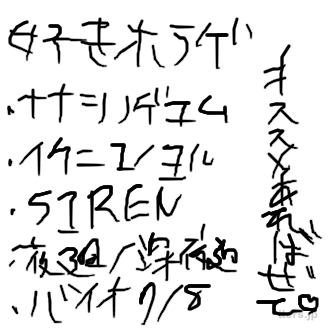 好きホラゲ
・ナナシノゲエム
・イケニエノヨル
・SIREN
・夜廻/深夜廻
・バイオ7/8
オススメあればぜひ